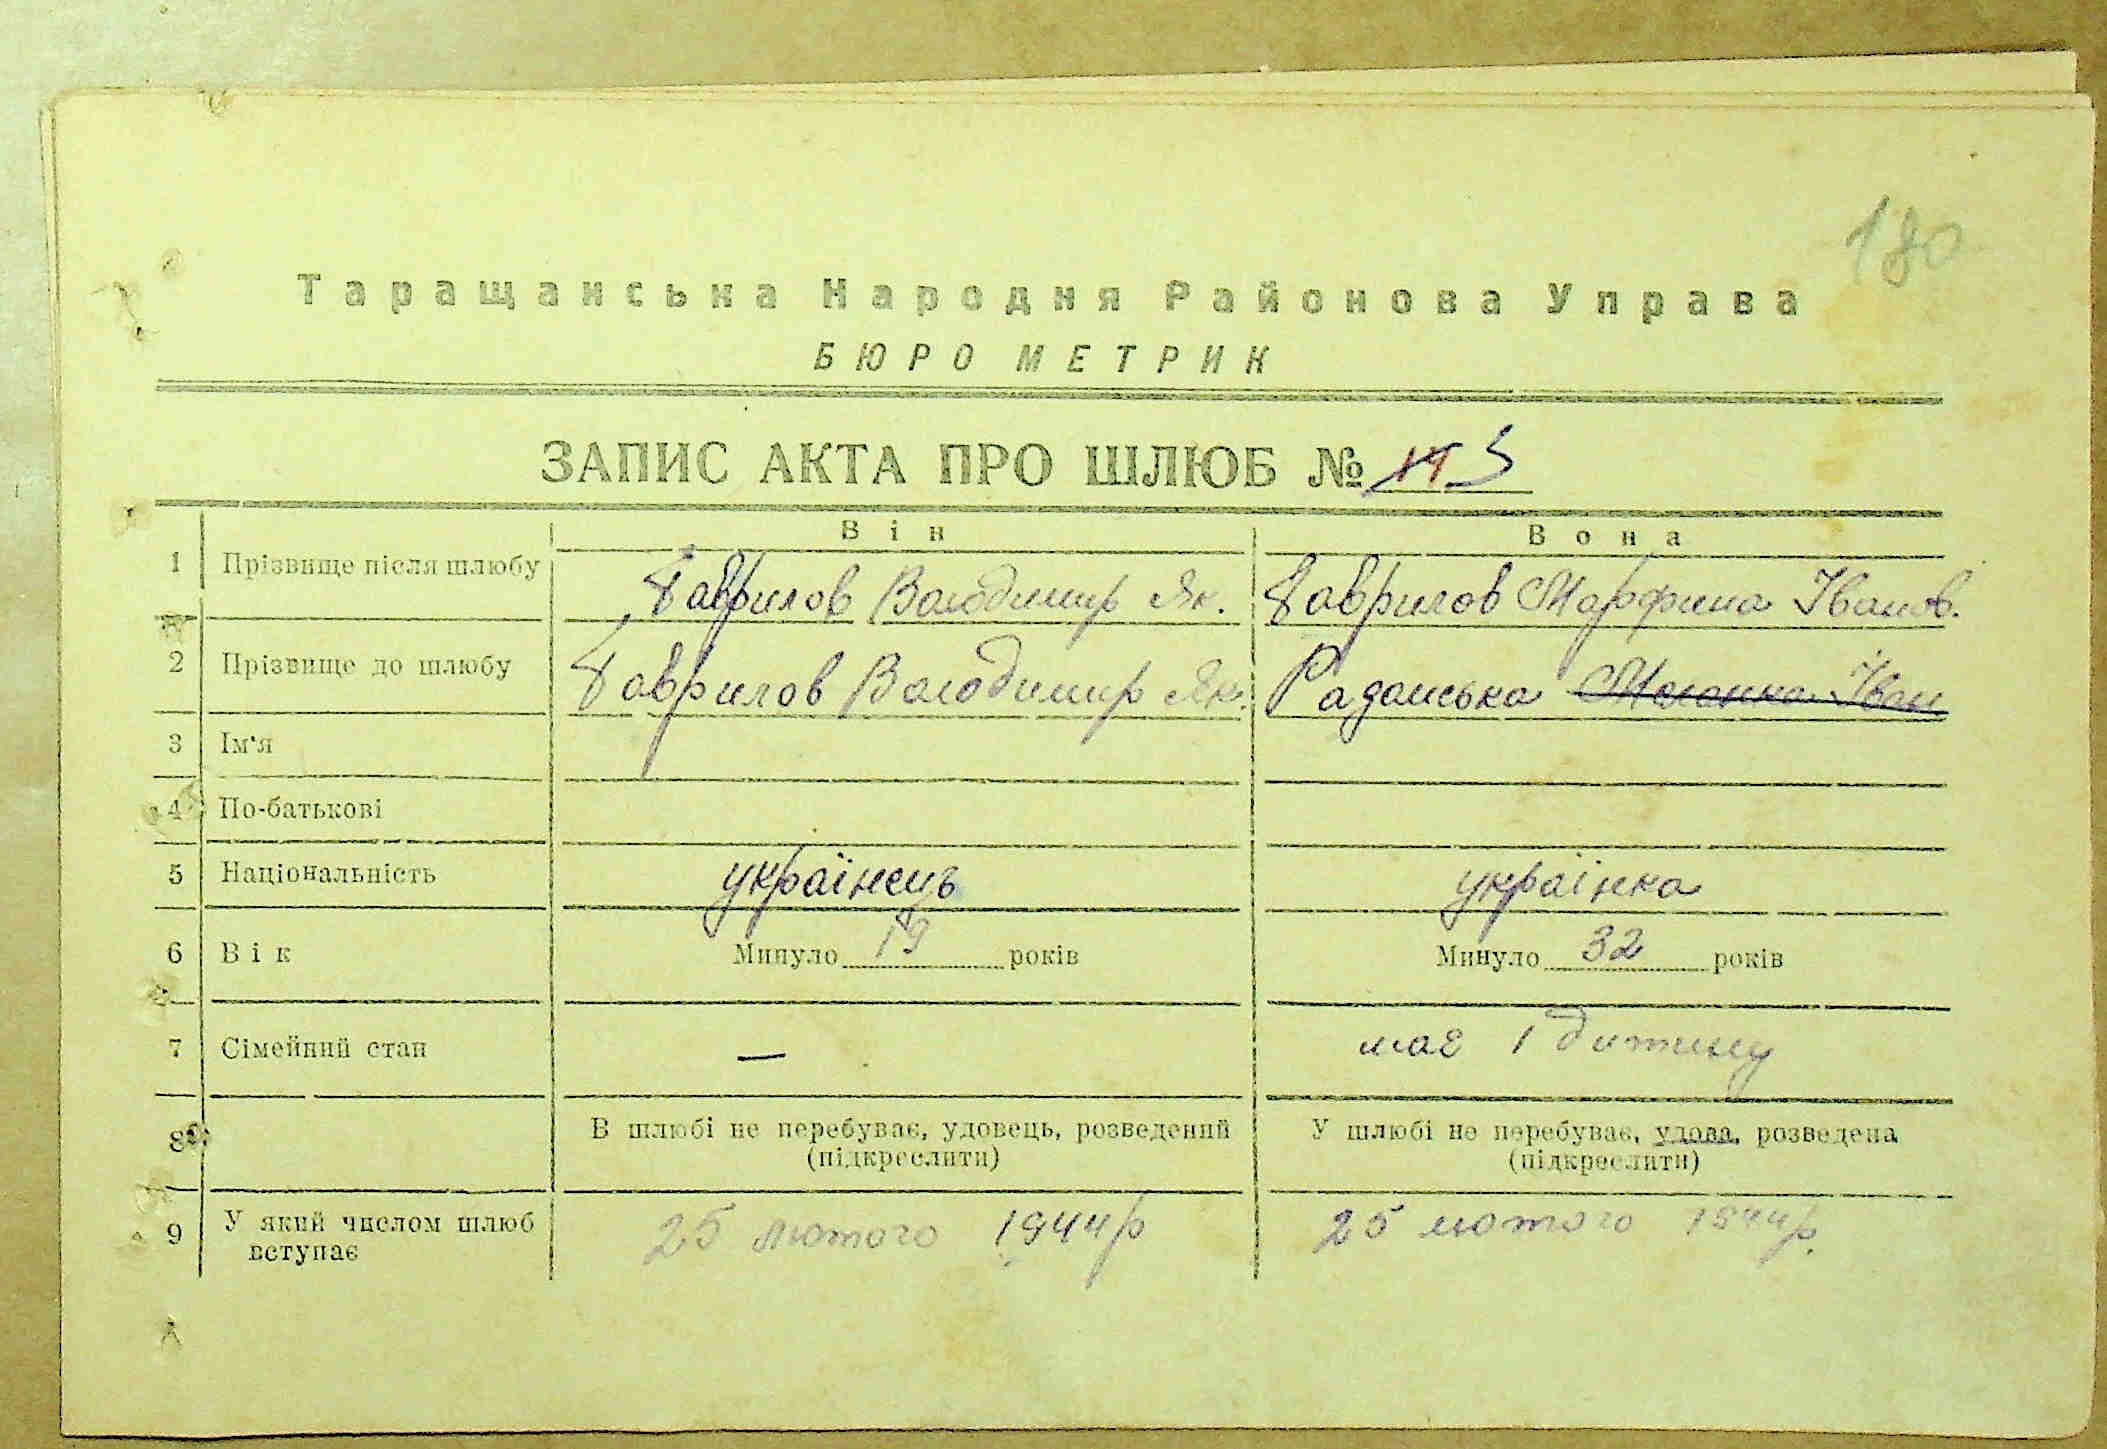 180
Таращанська Народня Районова Управа
БЮРО МЕТРИК
ЗАПИС АКТА ПРО ШЛЮБ № 14 3
Він Вона
1 Прізвище після шлюбу Гаврилов Володимир Як. Гаврилов Марфина Іванов.
2 Прізвище до шлюбу Гаврилов Володимир Як. Радомська Меланка Іван
3 Ім'я
4 По-батькові
5 Національність українець українка
6 Вік Минуло 19 років Минуло 32 років
7 Сімейний стан — має 1 дитину
8 В шлюбі не перебуває, удовець, розведений У шлюбі не перебуває, удова, розведена
(підкреслити) (підкреслити)
9 У який числом шлюб 25 лютого 1944 р 25 лютого 1944 р.
вступає